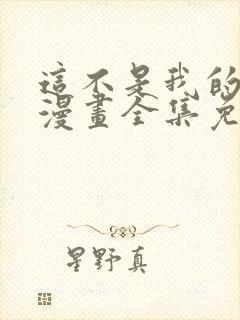 這不是我的
漫畫全集免
星野真